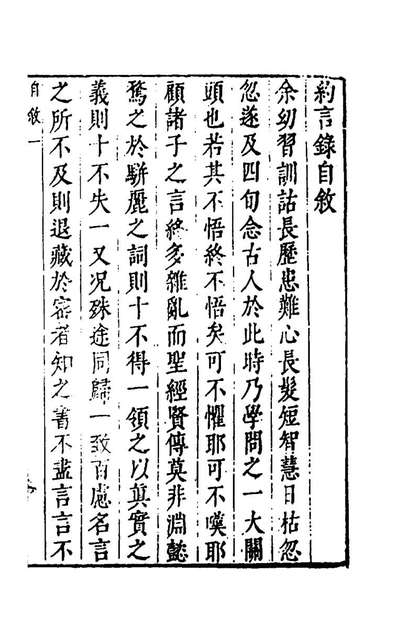 約言錄自敘
余幼習訓詁長歷患難心長髮短智慧日枯忽
忽遂及四旬念古人於此時乃學問之一大關
頭也若其不悟終不悟矣可不懼耶可不嘆耶
顧諸子之言終多雜亂而聖經賢傳莫非淵懿
騖之於駢麗之詞則十不得一領之以眞實之
義則十不失一又况殊途同歸一致百慮名言
之所不及則退藏於密者知之書不盡言言不
自敘一